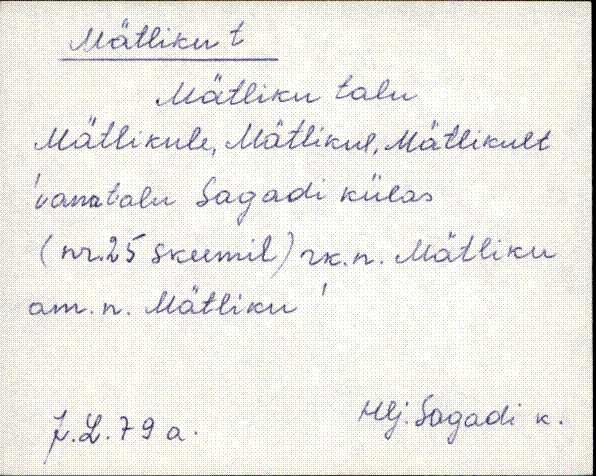 Mätliku t
Mätliku talu
Mätlikule, Mätlikul, Mätlikult
'vanatalu Sagadi külas
(nr.25 skeemil) rk.n. Mätliku
am.n. Mätliku'
J.L.79 a. Hlj. Sagadi k.